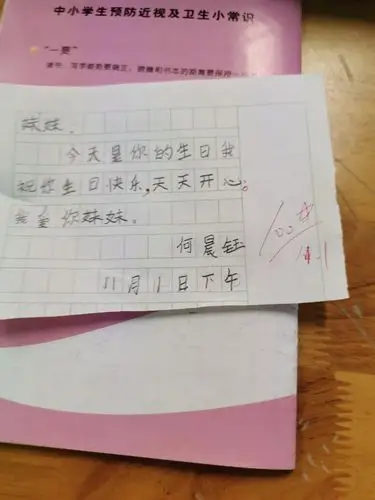 中小学生预防近视及卫生小常识
“一要”
妹妹。
今天是你的生日我
祝你生日快乐,天天开心。
我是你妹妹。
何晨钰
11月1日下午
100
11.1